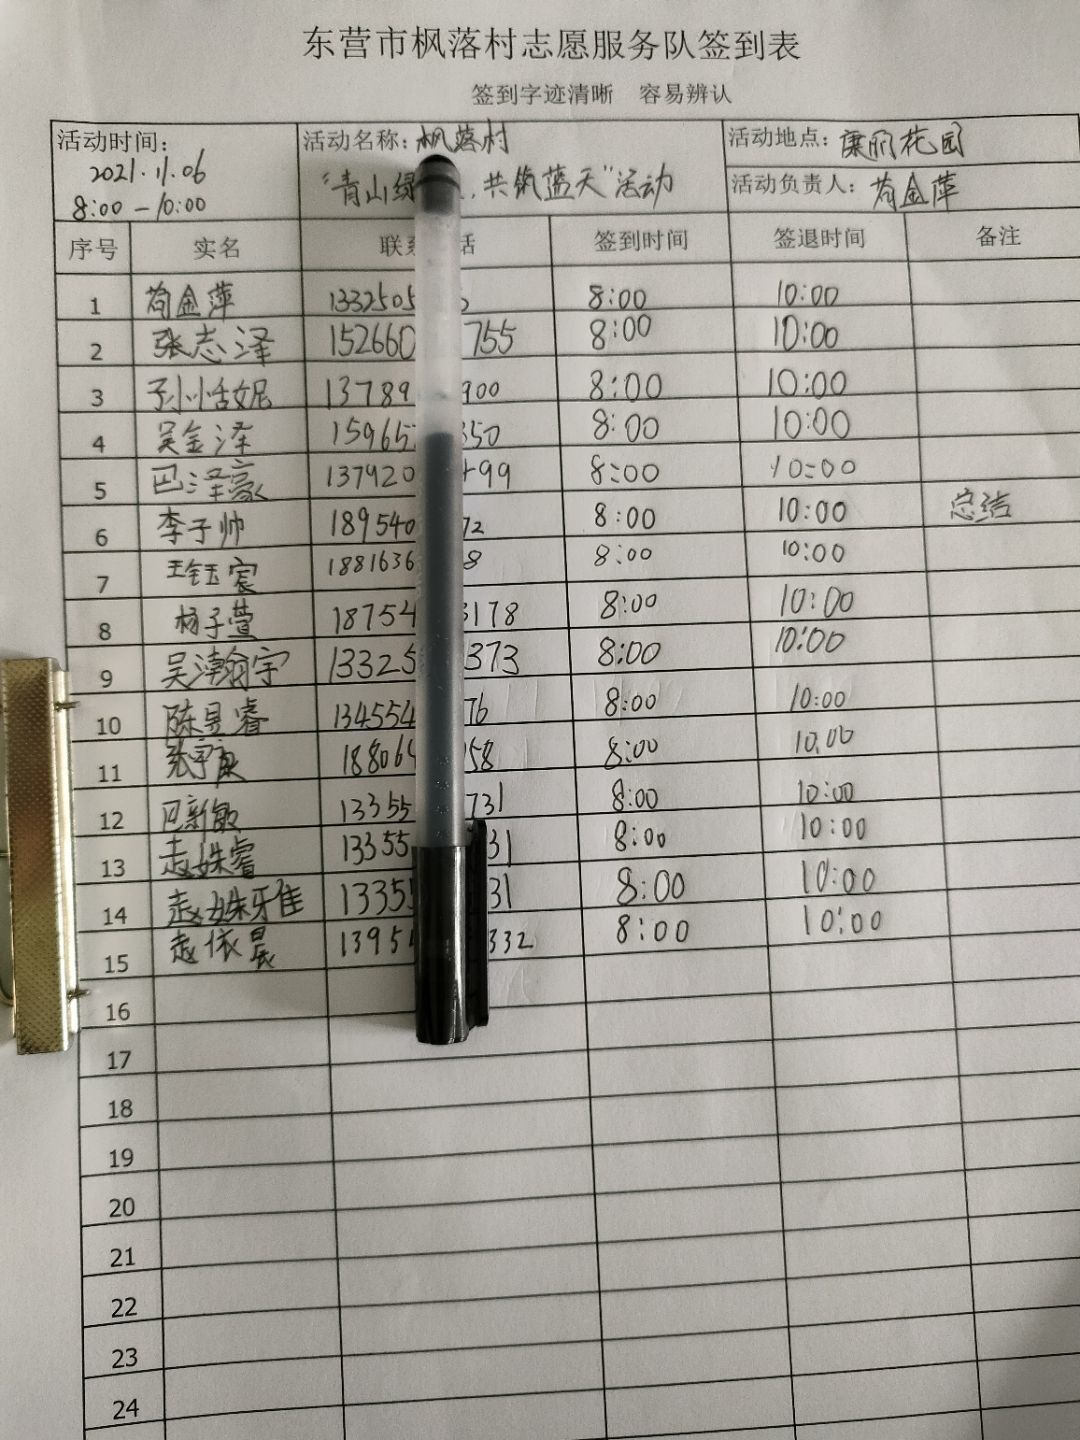 东营市枫落村志愿服务队签到表
签到字迹清晰 容易辨认
活动时间: 2021.11.06 8:00-10:00
活动名称:枫落村 "青山绿 ,共筑蓝天"活动
活动地点:康丽花园
活动负责人:苟金萍
序号 实名 联系 话 签到时间 签退时间 备注
1 苟金萍 1332505 2 8:00 10:00
2 张志泽 152660 755 8:00 10:00
3 孙小恬妮 13789 900 8:00 10:00
4 吴金泽 15965 350 8:00 10:00
5 巴泽豪 137920 499 8:00 10:00
6 李子帅 189540 72 8:00 10:00 总结
7 王钰宸 1881636 8 8:00 10:00
8 杨子萱 18754 3178 8:00 10:00
9 吴瀚宇 13325 373 8:00 10:00
10 陈昱睿 134554 76 8:00 10:00
11 张宇康 188064 158 8:00 10.00
12 巴新 13355 731 8:00 10:00
13 赵姝睿 1335 31 8:00 10:00
14 赵姝雅 1335 31 8:00 10:00
15 赵依晨 1395 332 8:00 10:00
16
17
18
19
20
21
22
23
24